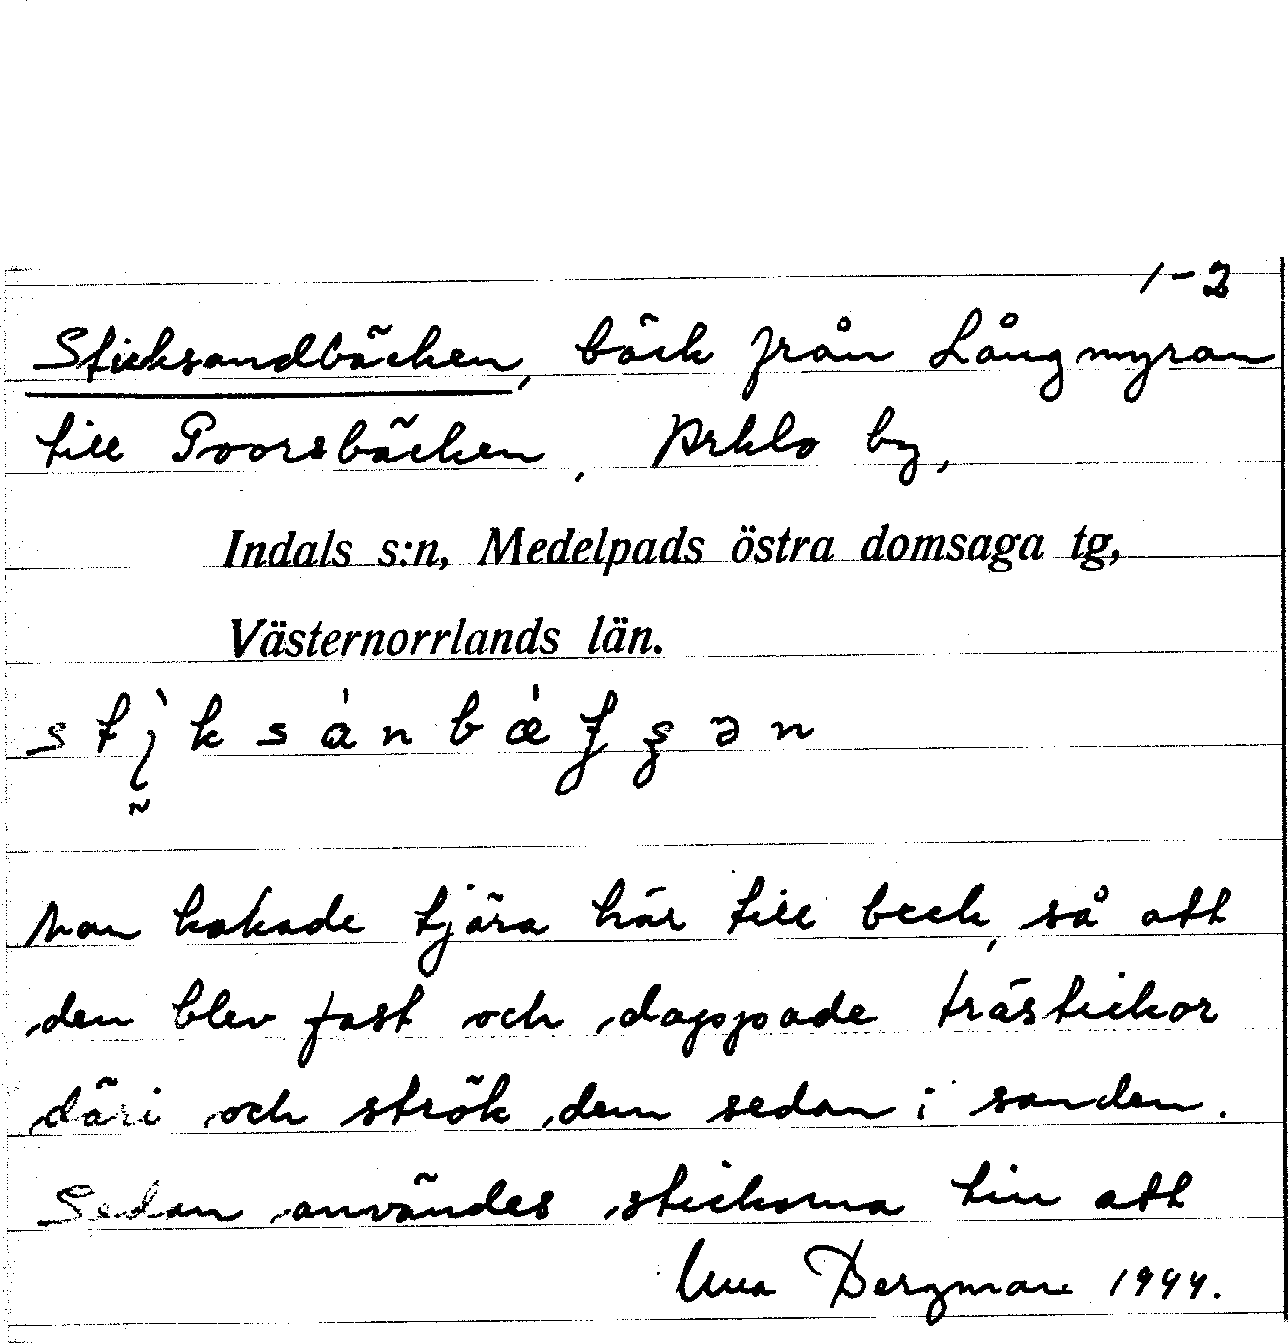 1-2
Sticksandbäcken, bäck från Långmyran
till Poorsbäcken, by,
Indals s:n, Medelpads östra domsaga tg,
Västernorrlands län.
Man kokade tjära här till beck, så att
den blev fast och doppade trästickor
däri och strök dem sedan i sanden.
Sedan användes stickorna till att
Bergman 1944.